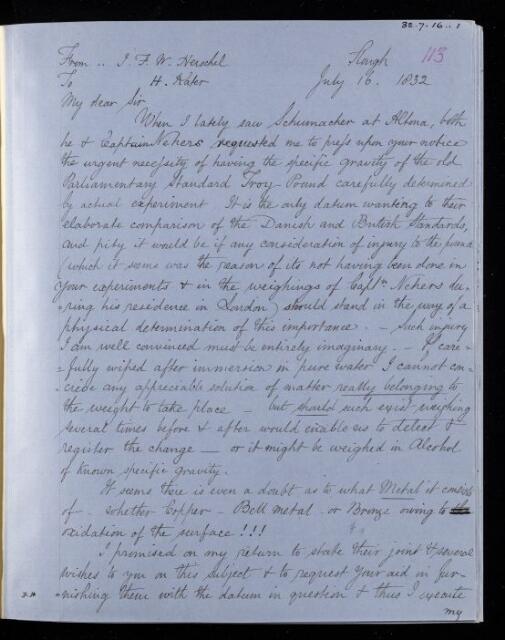 32.7.16..1
From .. J. F. W. Herschel Slough 113
To H. Kater July 16. 1832
My dear Sir
When I lately saw Schumacher at Altona, both
he & Captain Nehers requested me to press upon your notice
the urgent necessity of having the specific gravity of the old
Parliamentary Standard Troy Pound carefully determined
by actual experiment It is the only datum wanting to their
elaborate comparison of the Danish and British Standards,
and pity it would be if any consideration of injury to the pound
(which it seems was the reason of its not having been done in
your experiments & in the weighings of Captn. Nehers du-
-ring his residence in London) should stand in the way of a
physical determination of this importance. - Such injury
I am well convinced must be entirely imaginary. - If care-
-fully wiped after immersion in pure water I cannot con-
-cieve any appreciable solution of matter really belonging to
the weight to take place - but should such exist weighing
several times before & after would enable us to detect &
register the change — or it might be weighed in Alcohol
of known specific gravity.
It seems there is even a doubt as to what Metal it consists
of - whether Copper - Bell metal - or Bronze owing to the
oxidation of the surface!!!
I promised on my return to state their joint & several
wishes to you on this subject & to request your aid in fur-
-nishing them with the datum in question & thus I execute
my